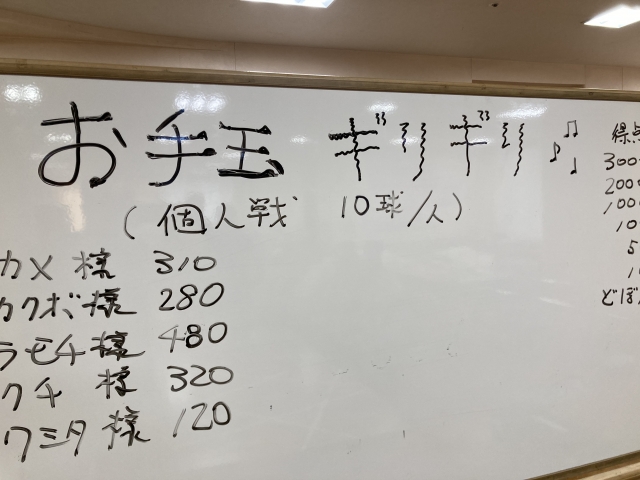 お手玉 ギリギリ
(個人戦 10球/人)
カメ様 310
カクボ様 280
ラモチ様 480
クチ様 320
ワミタ様 120
得点
300
200
100
10
5
10
どぼん